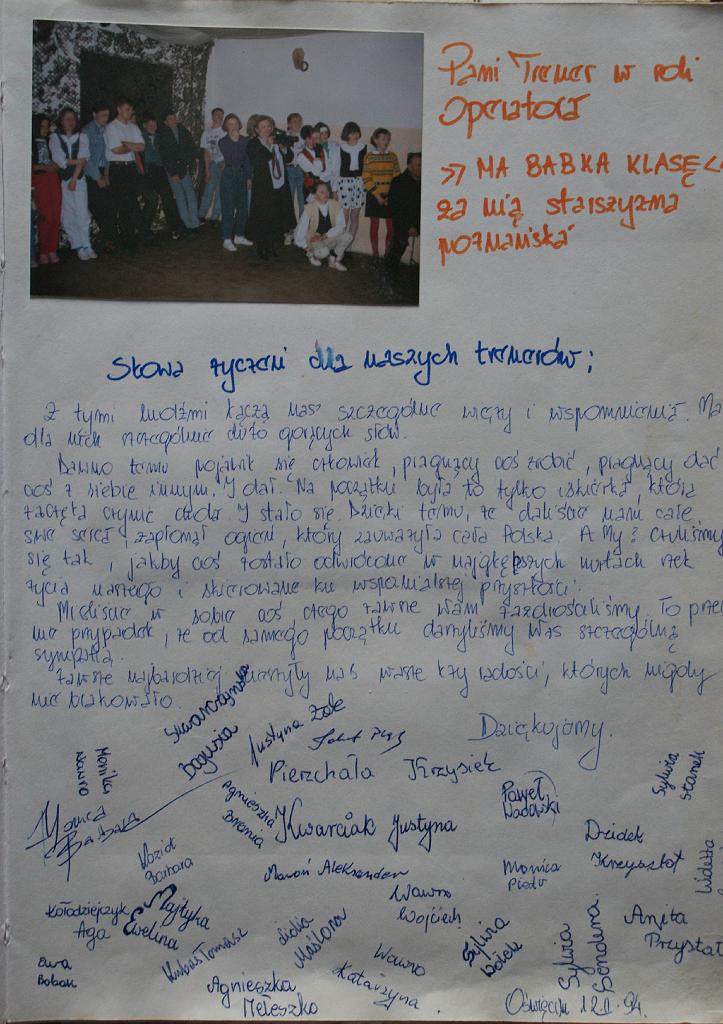 Pani Trener w roli
operatora
>> MA BABKA KLASĘ <
za nią starszyzna
poznańska
Słowa życzeń dla naszych trenerów;
Z tymi ludźmi łączą nas szczególne więzy i wspomnienia. Ma
dla nich szczególnie dużo gorących słów.
Dawno temu pojawił się człowiek, pragnący coś zrobić, pragnący dać
coś z siebie innym. I dał. Na początku była to tylko iskierka, która
zaczęła czynić cuda. I stało się. Dzięki temu, że daliście nam całe
swe serca, zapłonął ogień, który zauważyła cała Polska. A My? Czuliśmy
się tak, jakby coś zostało odwrócone w najgłębszych nurtach rzek
życia naszego i skierowane ku wspanialszej przyszłości.
Mieliście w sobie coś czego zawsze Wam zazdrościliśmy. To prze
nie przypadek, że od samego początku darzyliśmy Was szczególną
sympatią.
Zawsze najbardziej cieszyły nas wasze łzy radości, których nigdy
nie brakowało.
Dziękujemy.
Swarczyńska
Bogusia
Justyna Żak
Monika
Wawro
Pierzchała Krzysiek
Sylwia
Stanek
Paweł
Wadowski
Agnieszka
Bronia
Kwarciak Justyna
Barbara
Dzidek
Krzysztof
Wioletta
Kozioł
Barbara
Maroń Aleksander
Monica
Piodr
Wawro
Wojciech
Kołodziejczyk
Aga
Majtyka
Ewelina
Kubas Tomasz
Lidia
Maślona
Sylwia
Bołek
Sylwia
Gondura
Anita
Przystał
Ewa
Bobak
Agnieszka
Meleszko
Wawro
Katarzyna
Oświęcim 12.II.94.